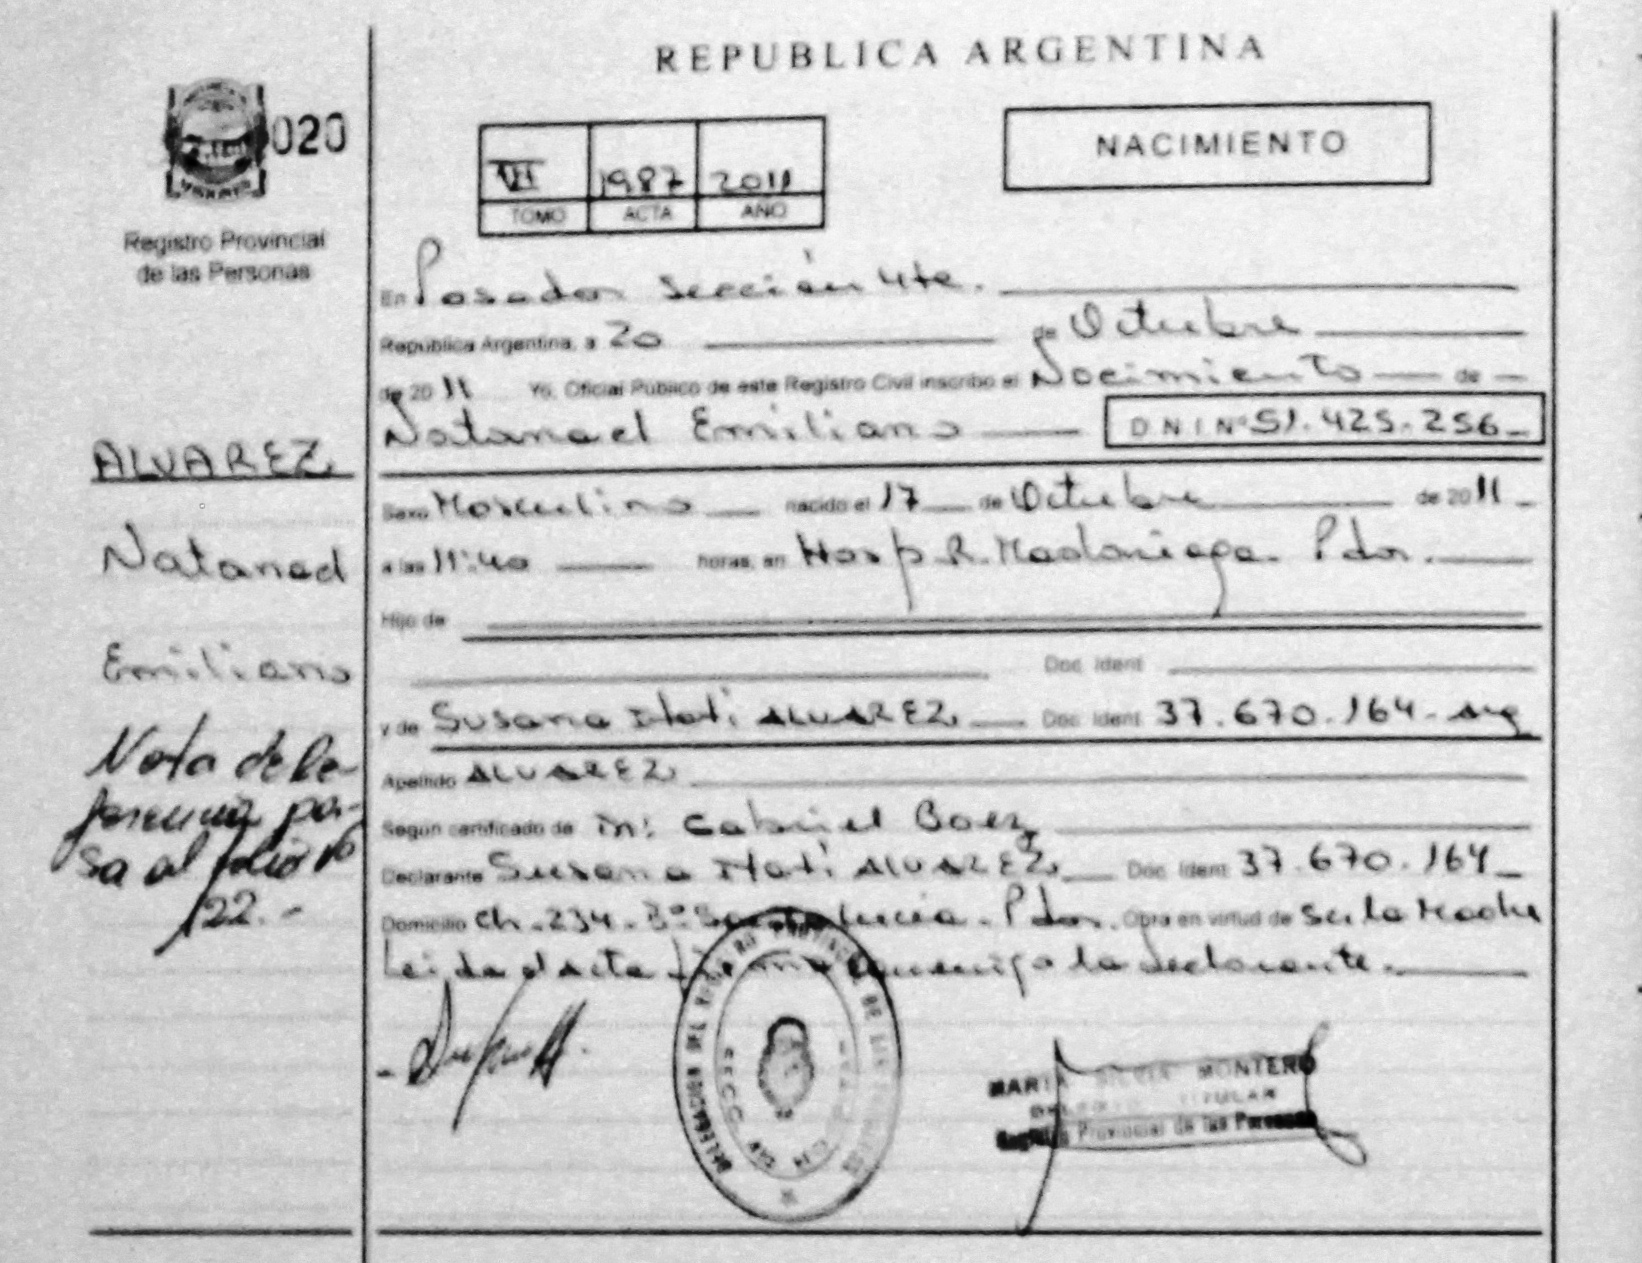 REPUBLICA ARGENTINA
020
NACIMIENTO
VII 1987 2011
TOMO ACTA AÑO
Registro Provincial
de las Personas
En Posadas Sección 4ta.
República Argentina, a 20 de Octubre
de 2011 Yo, Oficial Público de este Registro Civil inscribo el Nacimiento de
Natanael Emiliano D N I Nº 51.425.256
ALVAREZ
Natanael
Emiliano
Sexo Masculino nacido el 17 de Octubre de 2011
a las 11:40 horas, en Hosp. R. Madariaga. Pdas.
Hijo de
Doc. Ident.
y de Susana Itati ALVAREZ Doc. Ident. 37.670.164 - Arg
Apellido ALVAREZ
Según certificado de Gabriel Baez
Declarante Susana Itati ALVAREZ Doc. Ident. 37.670.164
Domicilio Ch. 234 - Bº Santa Lucia - Pdas. Obra en virtud de ser la Madre
Leida el acta firma conmigo la declarante.
Nota de Re-
ferencia pa-
sa al folio Nº
122.-
MARIA SILVIA MONTERO
TITULAR
Registro Provincial de las Personas